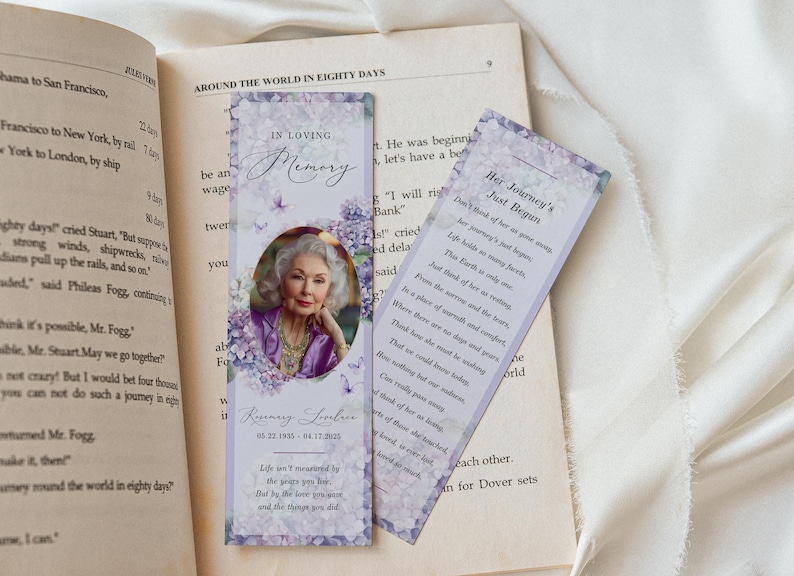 JULES VERNE
to San Francisco,
22 days
Francisco to New York, by rail 7 days
York to London, by ship
9 days
80 days
days!" cried Stuart, "But suppose the
strong winds, shipwrecks, railway
pull up the rails, and so on."
said Phileas Fogg, continuing to
it's possible, Mr. Fogg."
Mr. Stuart.May we go together?"
not crazy! But I would bet four thousand
you can not do such a journey in eighty
Mr. Fogg.
make it, then!"
round the world in eighty days?"
I can."
AROUND THE WORLD IN EIGHTY DAYS 9
He was
let's have a
be an
wage
"I will
Bank"
twen cried
delay
you
IN LOVING
Memory
Rosemary Lovelace
05.22.1935 - 04.17.2025
Life isn't measured by
the years you live.
But by the love you gave
and the things you did.
Her Journey's
Just Begun
Don't think of her as gone away,
her journey's just begun;
Life holds so many facets,
This Earth is only one.
Just think of her as resting,
From the sorrow and the tears,
In a place of warmth and comfort,
Where there are no days and years.
Think how she must be wishing
That we could know today,
How nothing but our sadness,
Can really pass away.
think of her as living,
of those she touched,
loved, is ever lost
loved so much.
world
each other.
in for Dover sets